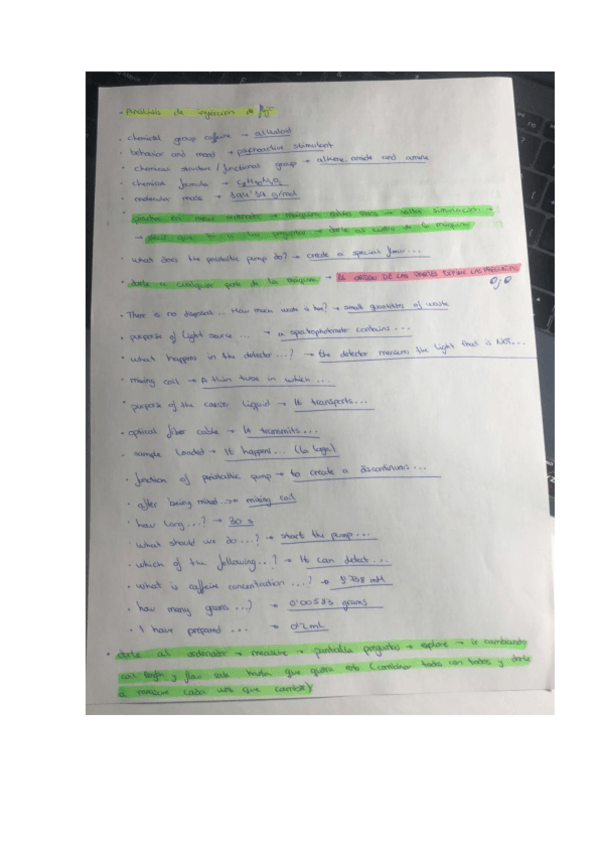 · Análisis de inyección de flujo
· chemical group caffeine → alkaloid
· behavior and mood → psychoactive stimulant
· chemical structure / functional group → alkene, amide and amine
· chemical formula → C8H10N4O2
· molecular mass → 194'34 g/mol
→ darle al
· what does the peristaltic pump do? → create a special flow...
· darle a cualquier parte de la máquina → EL ORDEN DE LAS PARTES DEFINE LAS PREGUNTAS
ojo
· There is no disposal... How much waste is here? → small quantities of waste
· purpose of light source ... → a spectrophotometer contains ...
· what happens in the detector...? → the detector measures the light that is NOT...
· mixing coil → A thin tube in which ...
· purpose of the carrier liquid → It transports...
· optical fiber cable → It transmits...
· sample loaded → It happens... (la larga)
· function of peristaltic pump → to create a discontinuous ...
· after being mixed ... → mixing coil
· how long...? → 30 s
· What should we do...? → start the pump...
· which of the following...? → It can detect...
· what is caffeine concentration ...? → mM
· how many grams ...? → 0'00583 grams
· I have prepared ... → 0'2 mL
· darle al ordenador → measure → pantalla preguntas → explore → ir cambiando
coil length y flow rate hasta que quiera esto (combinar todos con todos y darle
a measure cada vez que cambie)